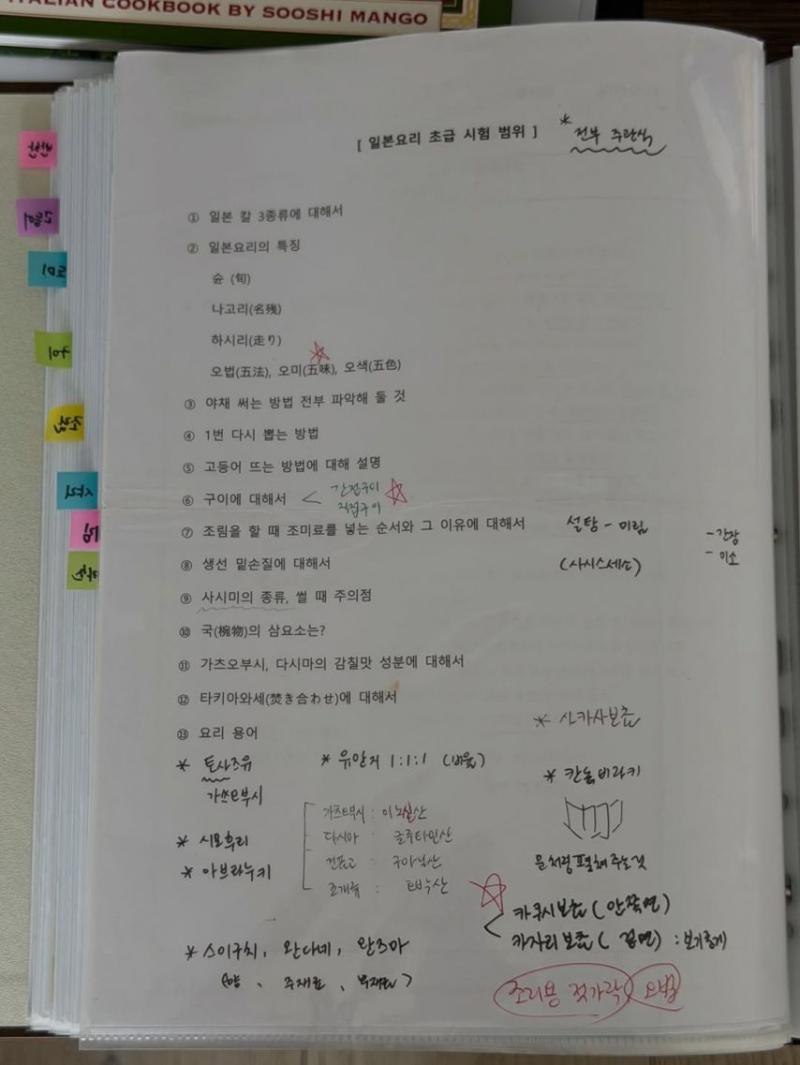 ITALIAN COOKBOOK BY SOOSHI MANGO
[ 일본요리 초급 시험 범위 ]
* 전부 주관식
① 일본 칼 3종류에 대해서
② 일본요리의 특징
슌 (旬)
나고리(名残)
하시리(走り)
오법(五法), 오미(五味), 오색(五色)
③ 야채 써는 방법 전부 파악해 둘 것
④ 1번 다시 뽑는 방법
⑤ 고등어 뜨는 방법에 대해 설명
⑥ 구이에 대해서 < 간접구이
직접구이
⑦ 조림을 할 때 조미료를 넣는 순서와 그 이유에 대해서 설탕 - 미림
- 간장
- 미소
⑧ 생선 밑손질에 대해서 (사시스세소)
⑨ 사시미의 종류, 썰 때 주의점
⑩ 국(椀物)의 삼요소는?
⑪ 가츠오부시, 다시마의 감칠맛 성분에 대해서
⑫ 타키아와세(焚き合わせ)에 대해서
⑬ 요리 용어
* 사카사보쵸
* 토사조유
가쓰오부시
* 유안지 1:1:1 (비율)
* 칸논비라키
가츠오부시 : 이노실산
다시마 : 글루타민산
건표고 : 구아닐산
조개류 : 호박산
* 시모후리
* 아브라누키
문처럼 포 해 주는것
카쿠시보쵸 (안쪽면)
카자리보쵸 ( 겉면) : 보기좋게
* 스이구치, 완다네, 완즈마
(향, 주재료, 부재료)
조리용 젓가락